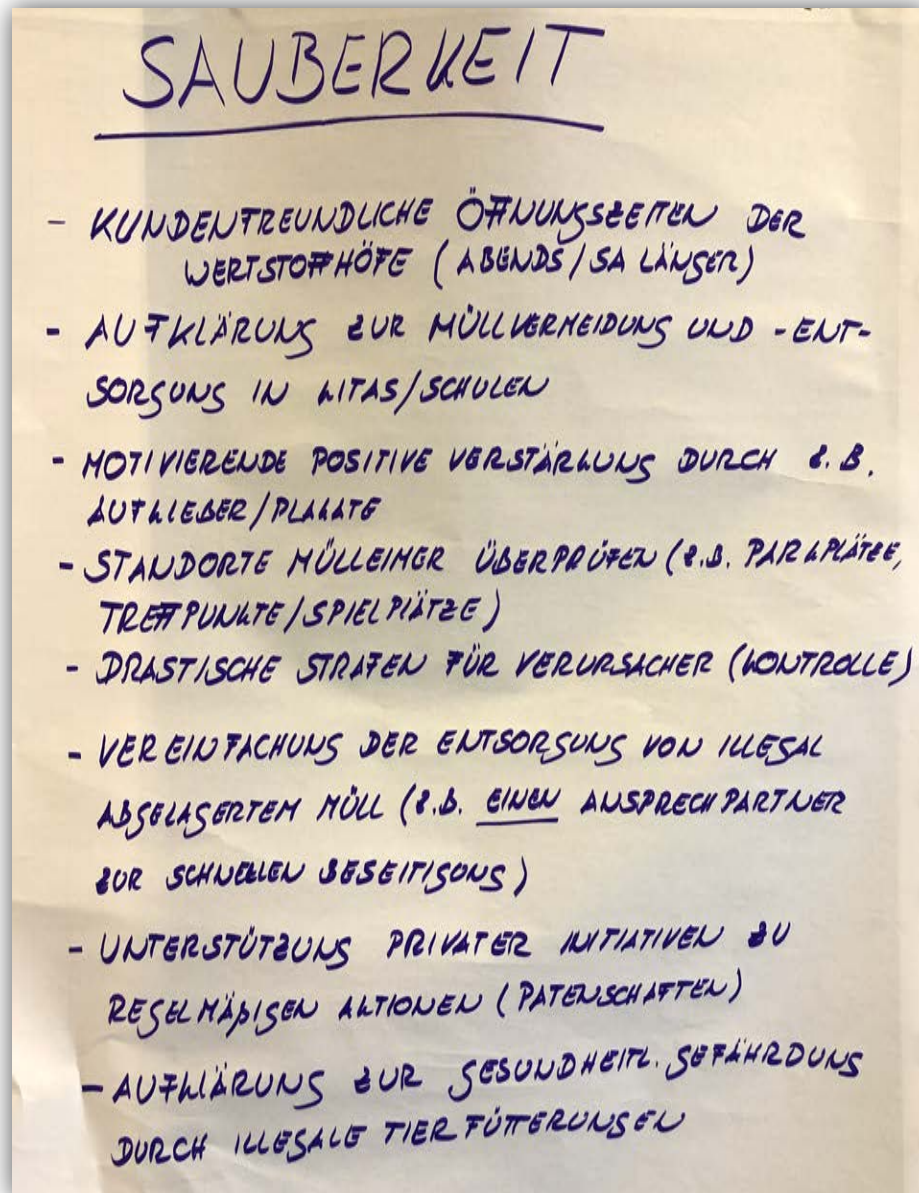 SAUBERKEIT
- KUNDENFREUNDLICHE ÖFFNUNGSZEITEN DER
WERTSTOFFHÖFE (ABENDS/SA LÄNGER)
- AUFKLÄRUNG ZUR MÜLLVERMEIDUNG UND -ENT-
SORGUNG IN KITAS/SCHULEN
- MOTIVIERENDE POSITIVE VERSTÄRKUNG DURCH Z.B.
AUFKLEBER/PLAKATE
- STANDORTE MÜLLEIMER ÜBERPRÜFEN (Z.B. PARKPLÄTZE,
TREFFPUNKTE/SPIELPLÄTZE)
- DRASTISCHE STRAFEN FÜR VERURSACHER (KONTROLLE)
- VEREINFACHUNG DER ENTSORGUNG VON ILLEGAL
ABGELAGERTEM MÜLL (Z.B. EINEN ANSPRECHPARTNER
ZUR SCHNELLEN BESEITIGUNG)
- UNTERSTÜTZUNG PRIVATER INITIATIVEN ZU
REGELMÄßIGEN AKTIONEN (PATENSCHAFTEN)
- AUFKLÄRUNG ZUR GESUNDHEITL. GEFÄHRDUNG
DURCH ILLEGALE TIERFÜTTERUNGEN